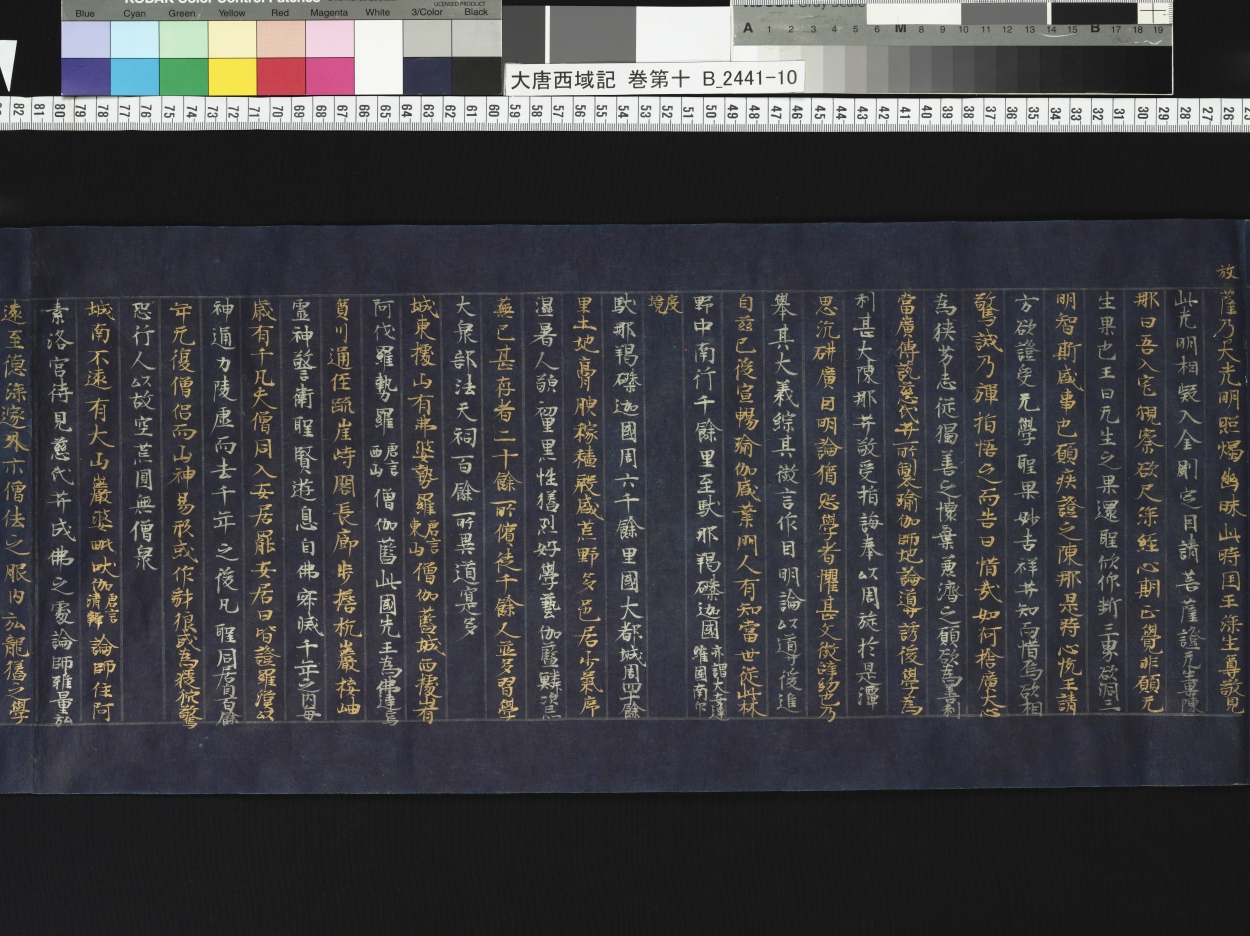 放薩乃大光明照燭幽昧此時国王深生尊敬見
此光明相疑入金剛定因請菩薩證无生果陳
那曰吾入定觀察欲尺深經心期正覺非願无
生果也王曰无生之果還聖攸仰斷三界欲洞三
明智斯盛事也願疾證之陳那是時心悅王請
方欲證受无學聖果妙吉祥井知而惜焉欲相
驚誡乃彈指悟之而告曰惜哉如何捨廣大心
為狹劣志從獨善之懷棄兼濟之願欲為善利
當廣傳說慈氏井所製瑜伽師地論導誘後學為
利甚大陳那井敬受指誨奉以周旋於是潭
思沉研廣因明論猶恐學者懼其文微辭約乃
舉其大義綜其微言作因明論以導後進
自茲已後宣暢瑜伽盛業門人有知當世從此林
野中南行千餘里至馱那羯磔迦國亦謂大安達邏國南印
度境
馱那羯磔迦國周六千餘里國大都城周四十餘
里土地膏腴稼穡殷盛荒野多邑居少氣序
溫暑人貌黧黑性猛烈好學藝伽藍鱗次
蕪已甚存者二十餘所僧徒千餘人並多習學
大衆部法天祠百餘所異道寔多
城東據山有弗婆勢羅唐言東山僧伽藍城西據山有
阿伐羅勢羅唐言西山僧伽藍此國先王為佛建焉
奠川通徑疏崖峙閣長廊步檐枕巖接岫
靈神警衛聖賢遊息自佛寂滅千年之內每
歲有千凡夫僧同入安居罷安居日皆證羅漢以
神通力陵虛而去千年之後凡聖同居自百餘
年无復僧侶而山神易形或作豺狼或為猨狖驚
恐行人以故空荒闃無僧衆
城南不遠有大山巖婆毗吠伽唐言清辯論師住阿
素洛宮待見慈氏井成佛之處論師雅量弘
遠至德深邃外示僧佉之服內弘龍猛之學